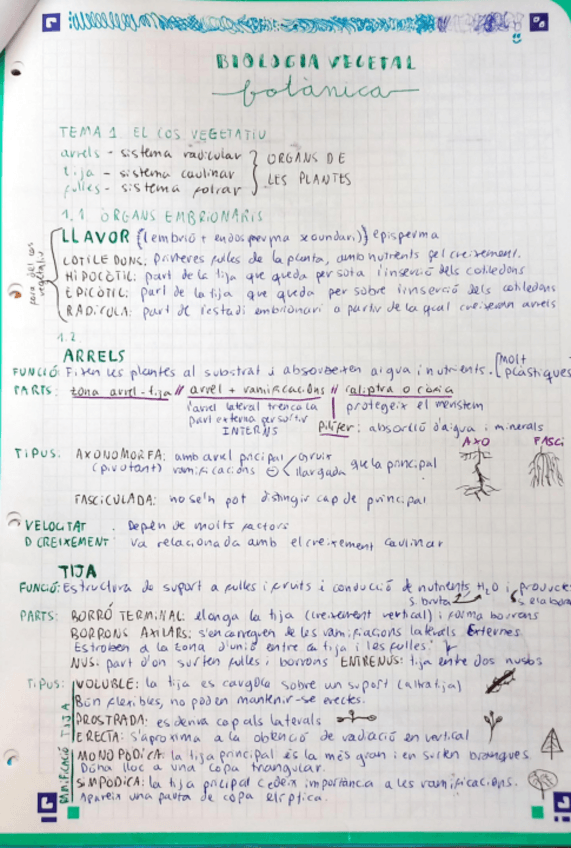 BIOLOGIA VEGETAL
botànica
TEMA 1. EL COS VEGETATIU
arrels - sistema radicular
tija - sistema caulinar
fulles - sistema foliar
ORGANS DE
LES PLANTES
1.1. ÒRGANS EMBRIONARIS
LLAVOR (embrió + endosperma secundari) episperma
COTILEDONS: primeres fulles de la planta, amb nutrients pel creixement.
HIPOCÒTIL: part de la tija que queda per sota l'inserció dels cotiledons
EPICÒTIL: part de la tija que queda per sobre l'inserció dels cotiledons
RADÍCULA: part de l'estadi embrionari a partir de la qual creixeran arrels
parts del cos
vegetatiu
1.2.
ARRELS
FUNCIÓ: Fixen les plantes al substrat i absorbeixen aigua i nutrients. [molt
plàstiques
PARTS: zona arrel-tija // arrel + ramificacions // caliptra o còfia
l'arrel lateral trenca la
part externa per sortir
INTERNS
protegeix el meristem
Pilífer: absorció d'aigua i minerals
TIPUS: AXONOMORFA: amb arrel pncipal i
(pivotant) ramificacions
gruix
llargada
que la principal
AXO
FASCI
FASCICULADA: no se'n pot distingir cap de principal
VELOCITAT
D CREIXEMENT
Depèn de molts factors
va relacionada amb el creixement caulinar
TIJA
FUNCIÓ: Estructura de suport a fulles i fruits i conducció de nutrients, H₂O i productes
S. bruta
S. elabora
PARTS: BORRÓ TERMINAL: elonga la tija (creixement vertical) i forma borrons
BORRONS AXILARS: s'encarreguen de les ramificacions laterals externes
Estroben a la zona d'unió entre la tija i les fulles.
NUS: part d'on surten fulles i borrons ENTRENÚS: tija entre dos nusos
TIPUS: VOLUBLE: la tija es cargola sobre un suport (altra tija)
Són flexibles, no poden mantenir-se erectes.
PROSTRADA: es deriva cap als laterals
ERECTA: s'aproxima a la obtenció de radiació en vertical
RAMIFICACIÓ TIJA
MONOPÒDICA: la tija principal és la més gran i en surten branques
Dóna lloc a una copa triangular.
SIMPÒDICA: la tija pncipal cedeix importància a les ramificacions.
Apareix una pauta de copa el·líptica.